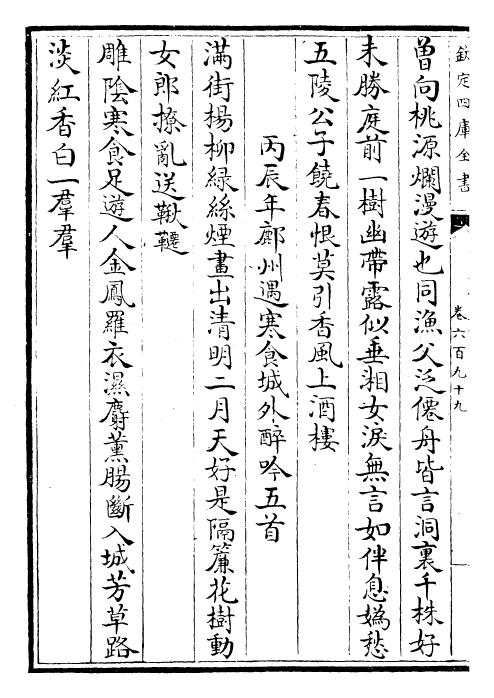 欽定四庫全書
卷六百九十九
曾向桃源爛漫遊也同漁父泛僊舟皆言洞裏千株好
未勝庭前一樹幽帶露似垂湘女淚無言如伴息媯愁
五陵公子饒春恨莫引香風上酒樓
丙辰年鄜州遇寒食城外醉吟五首
滿街楊柳綠絲煙畫出清明二月天好是隔簾花樹動
女郎撩亂送鞦韆
雕陰寒食足遊人金鳳羅衣濕麝薰腸斷入城芳草路
淡紅香白一羣羣